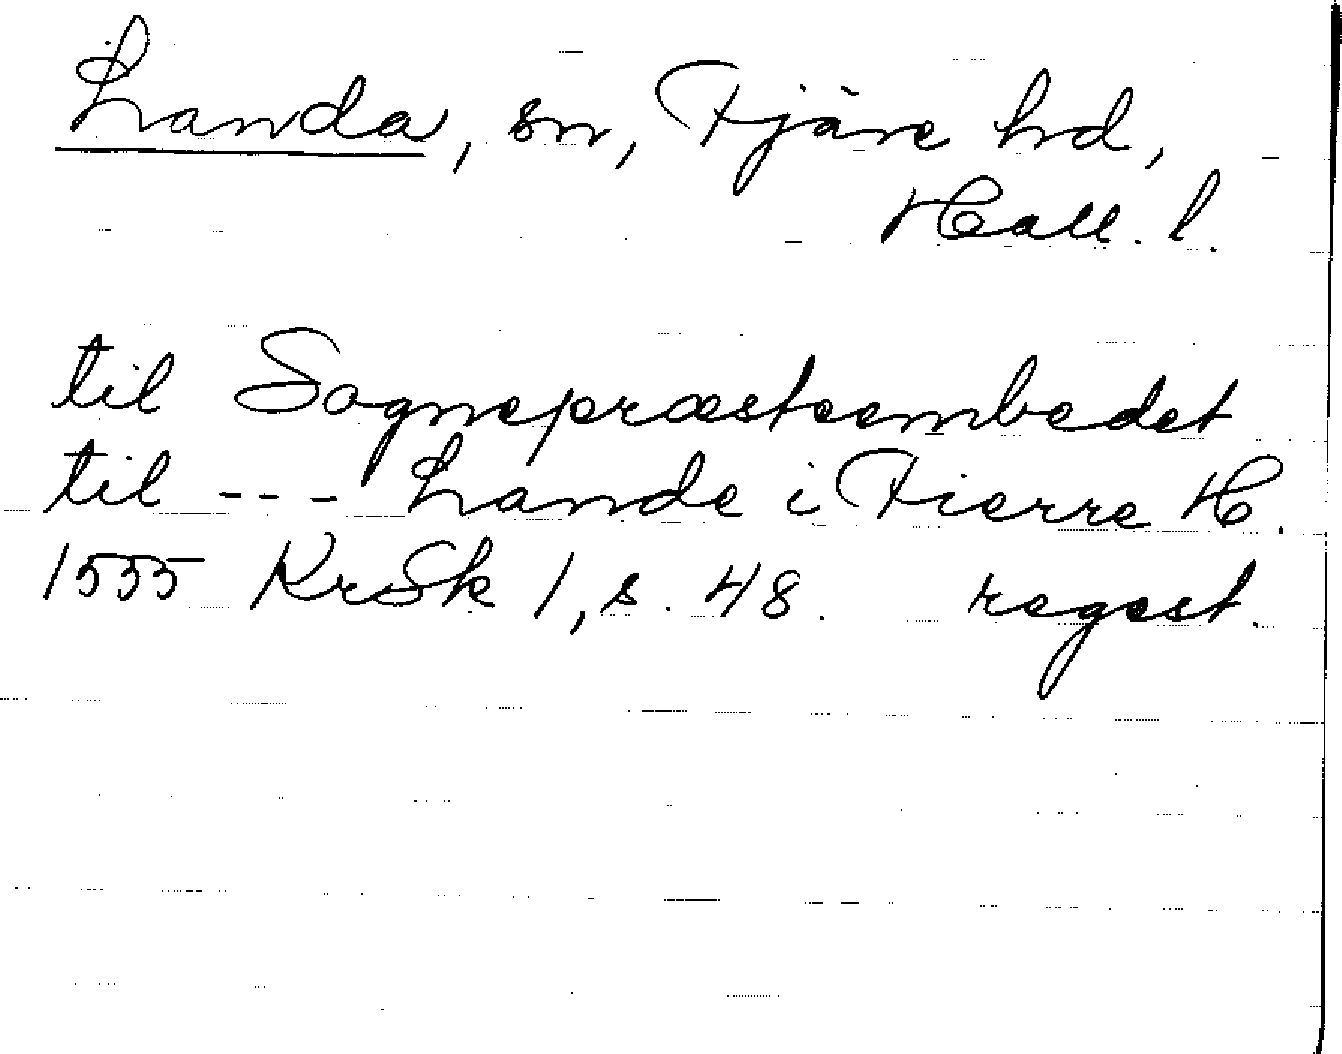 Landa, sn, Fjäre hd,
Hall. l.
til Sognepræsteembedet
til --- Lande i Fierre H.
1555 KrSk 1, s. 48. regest.